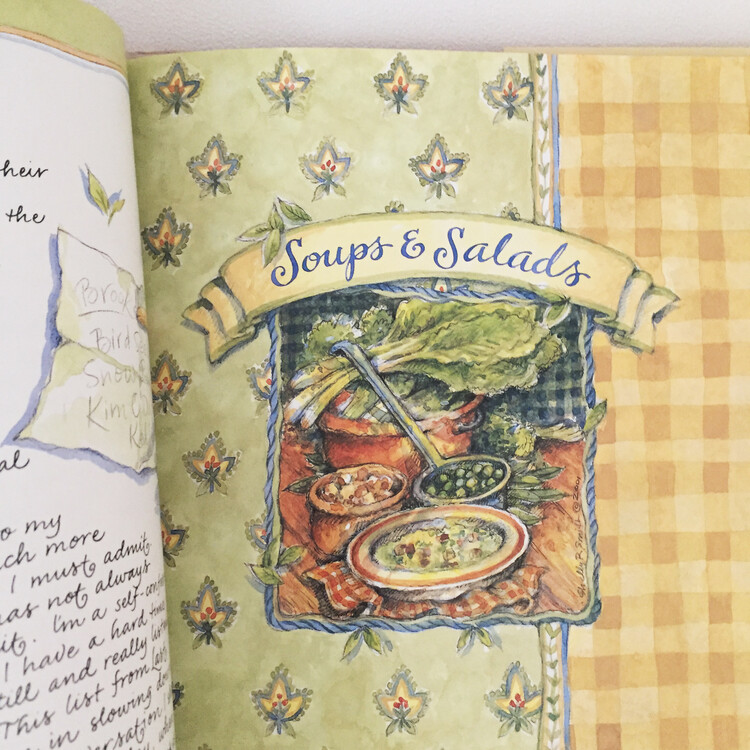 heir
the
Bird
Kim
al
o my
ch more
I must admit.
as not always
it. I'm a self-con
I have a hard time
till and really list
This list from
in slowing do
ersation
Soups & Salads